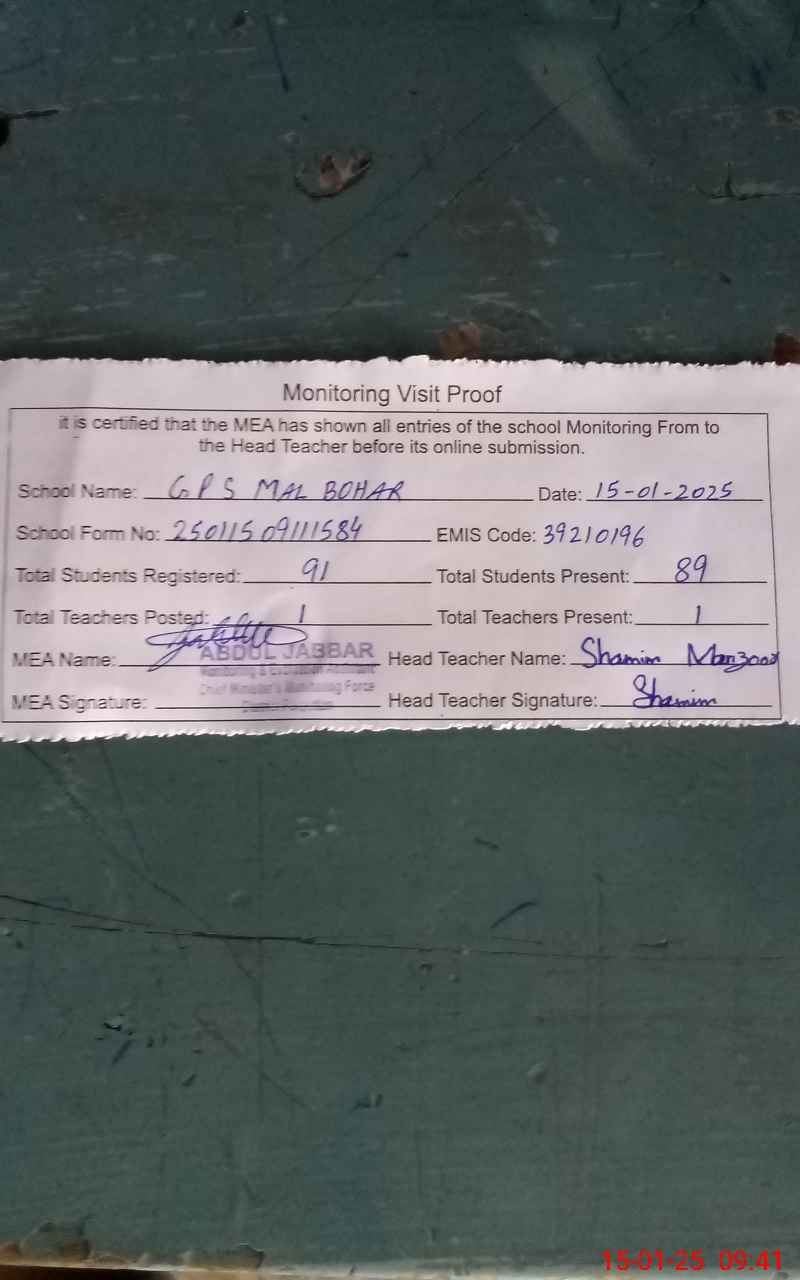 Monitoring Visit Proof
it is certified that the MEA has shown all entries of the school Monitoring From to
the Head Teacher before its online submission.
School Name: GPS MAL BOHAR Date: 15-01-2025
School Form No: 25011509111584 EMIS Code: 39210196
Total Students Registered: 91 Total Students Present: 89
Total Teachers Posted: 1 Total Teachers Present: 1
MEA Name: ABDUL JABBAR Head Teacher Name: Shamim Manzoor
Monitoring & Evaluation Assistant
MEA Signature: Chief Minister's Monitoring Force Head Teacher Signature: Shamim
15-01-25 09:41